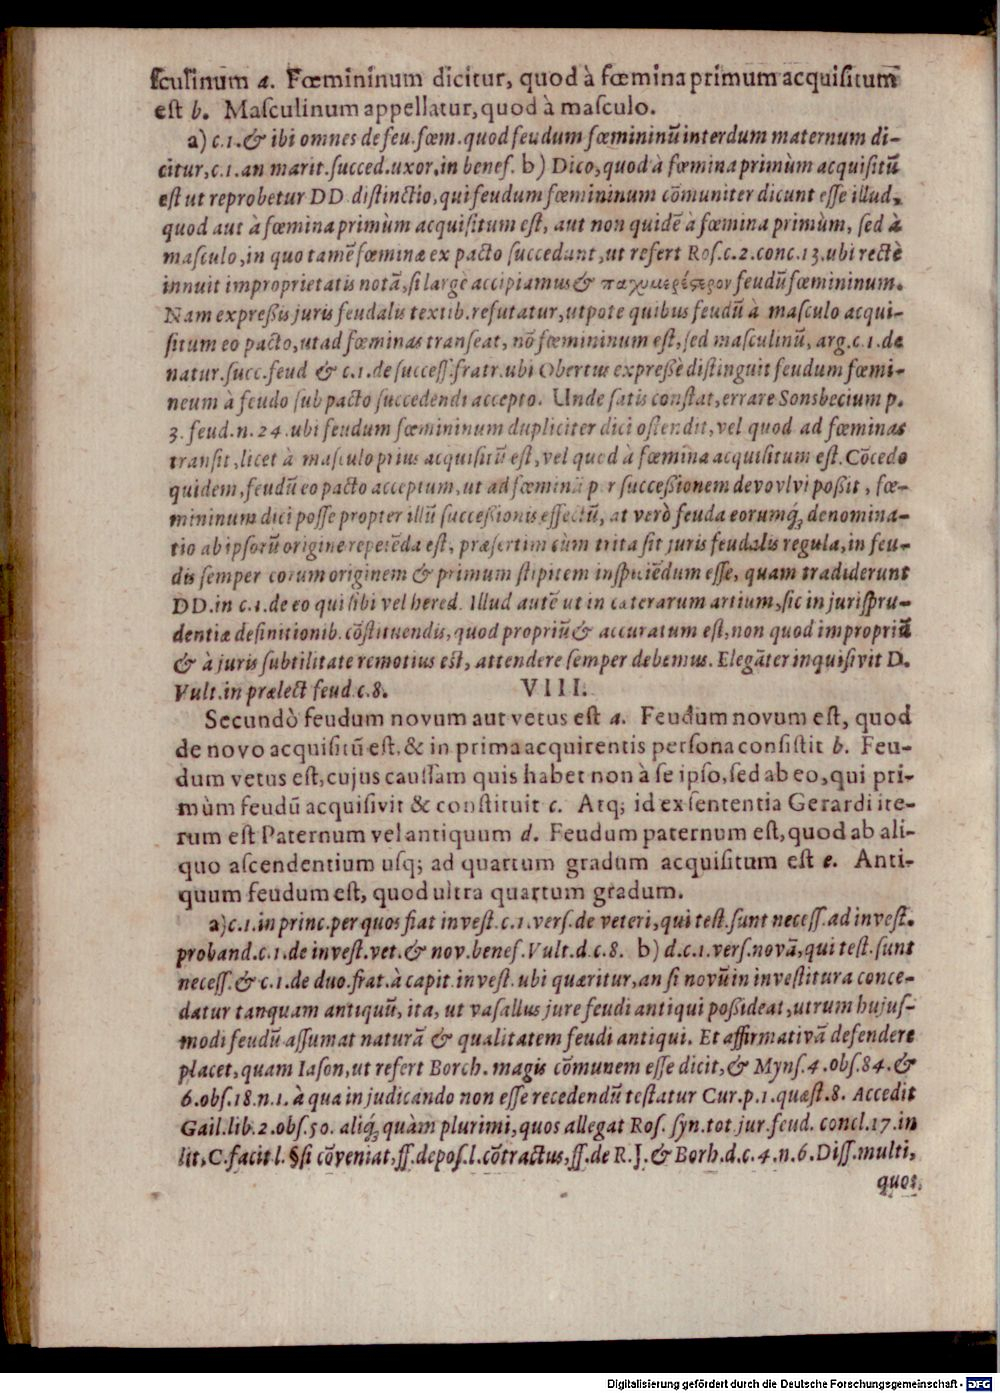 ſculinum a. Fœmininum dicitur, quod à fœmina primum acquiſitum
eſt b. Maſculinum appellatur, quod à maſculo.
a) c.1. & ibi omnes de feu. fœm. quod feudum fœmininū interdum maternum di-
citur, c.1. an marit. ſucced. uxor. in benef. b) Dico, quod à fœmina primùm acquiſitū
eſt ut reprobetur DD. diſtinctio, qui feudum fœmininum cōmuniter dicunt eſſe illud,
quod aut à fœmina primùm acquiſitum eſt, aut non quidē à fœmina primùm, ſed à
maſculo, in quo tamē fœminæ ex pacto ſuccedunt, ut refert Roſ. c. 2. conc. 13. ubi rectè
innuit improprietatis notā, ſi largè accipiamus & παχυμερέςερον feudū fœmininum.
Nam expreßis juris feudalis textib. refutatur, utpote quibus feudū à maſculo acqui-
ſitum eo pacto, ut ad fœminas tranſeat, nō fœmininum eſt, ſed maſculinū, arg. c. 1. de
natur. ſucc. feud & c. 1. de ſucceſſ. fratr. ubi Obertus expreßè diſtinguit feudum fœmi-
neum à feudo ſub pacto ſuccedendi accepto. Unde ſatis conſtat, errare Sonsbecium p.
3. feud. n. 24. ubi feudum fœmininum dupliciter dici oſtendit, vel quod ad fœminas
tranſit, licet à maſculo prius acquiſitū eſt, vel quod à fœmina acquiſitum eſt. Cōcedo
quidem, feudū eo pacto acceptum, ut ad fœminā per ſucceßionem devovlvi poßit, fœ-
mininum dici poſſe propter illū ſucceßionis effectū, at verò feuda eorumq́; denomina-
tio ab ipſorū origine repetēda eſt, præſertim cùm trita ſit juris feudalis regula, in feu-
dis ſemper eorum originem & primum ſtipitem inſpiciēdum eſſe, quam tradiderunt
DD. in c. 1. de eo qui ſibi vel hered. Illud autē ut in cæterarum artium, ſic in juriſpru-
dentiæ definitionib. cōſtituendis, quod propriū & accuratum eſt, non quod impropriū
& à juris ſubtilitate remotius eſt, attendere ſemper debemus. Elegāter inquiſivit D.
Vult. in prælect feud. c. 8. VIII.
Secundò feudum novum aut vetus eſt a. Feudum novum eſt, quod
de novo acquiſitū eſt, & in prima acquirentis perſona conſiſtit b. Feu-
dum vetus eſt, cujus cauſſam quis habet non à ſe ipſo, ſed ab eo, qui pri-
mùm feudū acquiſivit & conſtituit c. Atq; id ex ſententia Gerardi ite-
rum eſt Paternum vel antiquum d. Feudum paternum eſt, quod ab ali-
quo aſcendentium uſq; ad quartum gradum acquiſitum eſt e. Anti-
quum feudum eſt, quod ultra quartum gradum.
a) c. 1. in princ. per quos fiat inveſt. c. 1. verſ. de veteri, qui teſt. ſunt neceſſ. ad inveſt.
proband. c. 1. de inveſt. vet. & nov. benef. Vult. d. c. 8. b) d. c. 1. verſ. novā, qui teſt. ſunt
neceſſ. & c. 1. de duo. frat. à capit. inveſt. ubi quæritur, an ſi novū in inveſtitura conce-
datur tanquam antiquū, ita, ut vaſallus jure feudi antiqui poßideat, utrum hujuſ-
modi feudū aſſumat naturā & qualitatem feudi antiqui. Et affirmativā defendere
placet, quam Iaſon, ut refert Borch. magis cōmunem eſſe dicit, & Mynſ. 4. obſ. 84. &
6. obſ. 18. n. 1. à qua in judicando non eſſe recedendū teſtatur Cur. p. 1. quæſt. 8. Accedit
Gail. lib. 2. obſ. 50. aliq́; quàm plurimi, quos allegat Roſ. ſyn. tot. jur. feud. concl. 17. in
lit, C. facit l. §ſi cōveniat, ff. depoſ. l. cōtractus, ff. de R. J. & Borh. d. c. 4. n. 6. Diſſ. multi,
quos
Digitalisierung gefördert durch die Deutsche Forschungsgemeinschaft - DFG